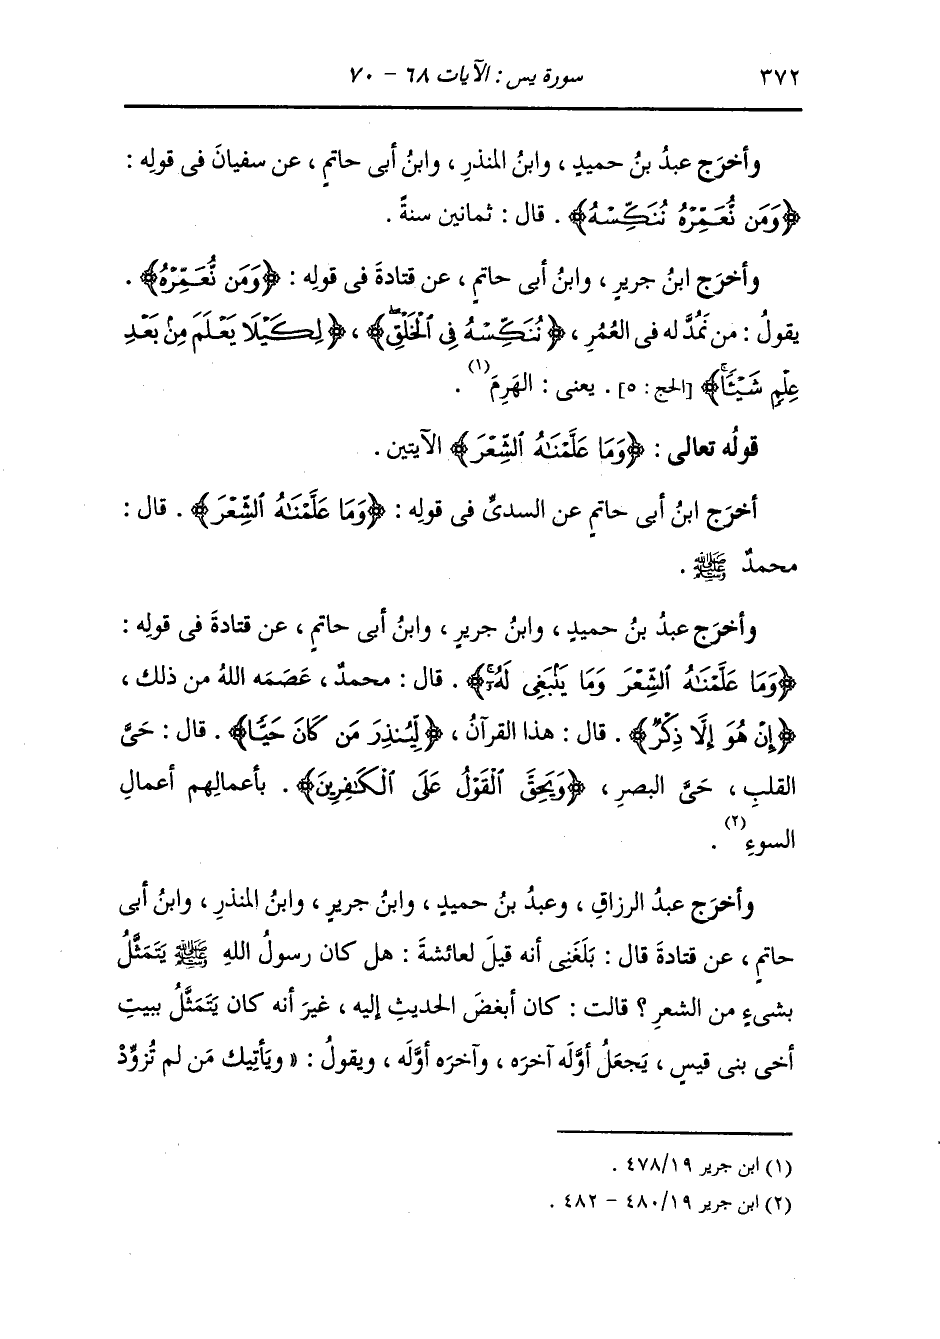 ٣٧٢ سورة يس : الآيات ٦٨ - ٧٠
وأخرَج عبدُ بنُ حميدٍ ، وابنُ المنذرِ ، وابنُ أبى حاتمٍ ، عن سفيانَ فى قولِه :
﴿وَمَن نُّعَمِّرْهُ نُنَكِّسْهُ﴾ . قال : ثمانين سنةً .
وأخرَج ابنُ جريرٍ ، وابنُ أبى حاتمٍ ، عن قتادةَ فى قولِه : ﴿وَمَن نُّعَمِّرْهُ﴾ .
يقولُ : من نَمُدَّ له فى العُمُرِ ، ﴿نُنَكِّسْهُ فِي ٱلْخَلْقِۖ﴾ ، ﴿لِكَيْلَا يَعْلَمَ مِنۢ بَعْدِ
عِلْمٍ شَيْـًٔاۚ﴾ [الحج : ٥] . يعنى : الهَرِمَ(١) .
قولُه تعالى : ﴿وَمَا عَلَّمْنَـٰهُ ٱلشِّعْرَ﴾ الآيتين .
أخرَج ابنُ أبى حاتمٍ عن السدىِّ فى قولِه : ﴿وَمَا عَلَّمْنَـٰهُ ٱلشِّعْرَ﴾ . قال :
محمدٌ ﷺ .
وأخرَج عبدُ بنُ حميدٍ ، وابنُ جريرٍ ، وابنُ أبى حاتمٍ ، عن قتادةَ فى قولِه :
﴿وَمَا عَلَّمْنَـٰهُ ٱلشِّعْرَ وَمَا يَنۢبَغِى لَهُۥٓۚ﴾ . قال : محمدٌ ، عَصَمَه اللهُ من ذلك ،
﴿إِنْ هُوَ إِلَّا ذِكْرٌ﴾ . قال : هذا القرآنُ ، ﴿لِّيُنذِرَ مَن كَانَ حَيًّا﴾ . قال : حَىَّ
القلبِ ، حَىَّ البصرِ ، ﴿وَيَحِقَّ ٱلْقَوْلُ عَلَى ٱلْكَـٰفِرِينَ﴾ . بأعمالِهم أعمالِ
السوءِ(٢) .
وأخرَج عبدُ الرزاقِ ، وعبدُ بنُ حميدٍ ، وابنُ جريرٍ ، وابنُ المنذرِ ، وابنُ أبى
حاتمٍ ، عن قتادةَ قال : بَلَغَنِى أنه قيلَ لعائشةَ : هل كان رسولُ اللهِ ﷺ يَتَمَثَّلُ
بشىءٍ من الشعرِ ؟ قالت : كان أبغضَ الحديثِ إليه ، غيرَ أنه كان يَتَمَثَّلُ ببيتِ
أخى بنى قيسٍ ، يَجعَلُ أوَّلَه آخرَه ، وآخرَه أوَّلَه ، ويقولُ : « ويَأتِيك مَن لم تُزوِّدْ
(١) ابن جرير ٤٧٨/١٩ .
(٢) ابن جرير ٤٨٠/١٩ - ٤٨٢ .